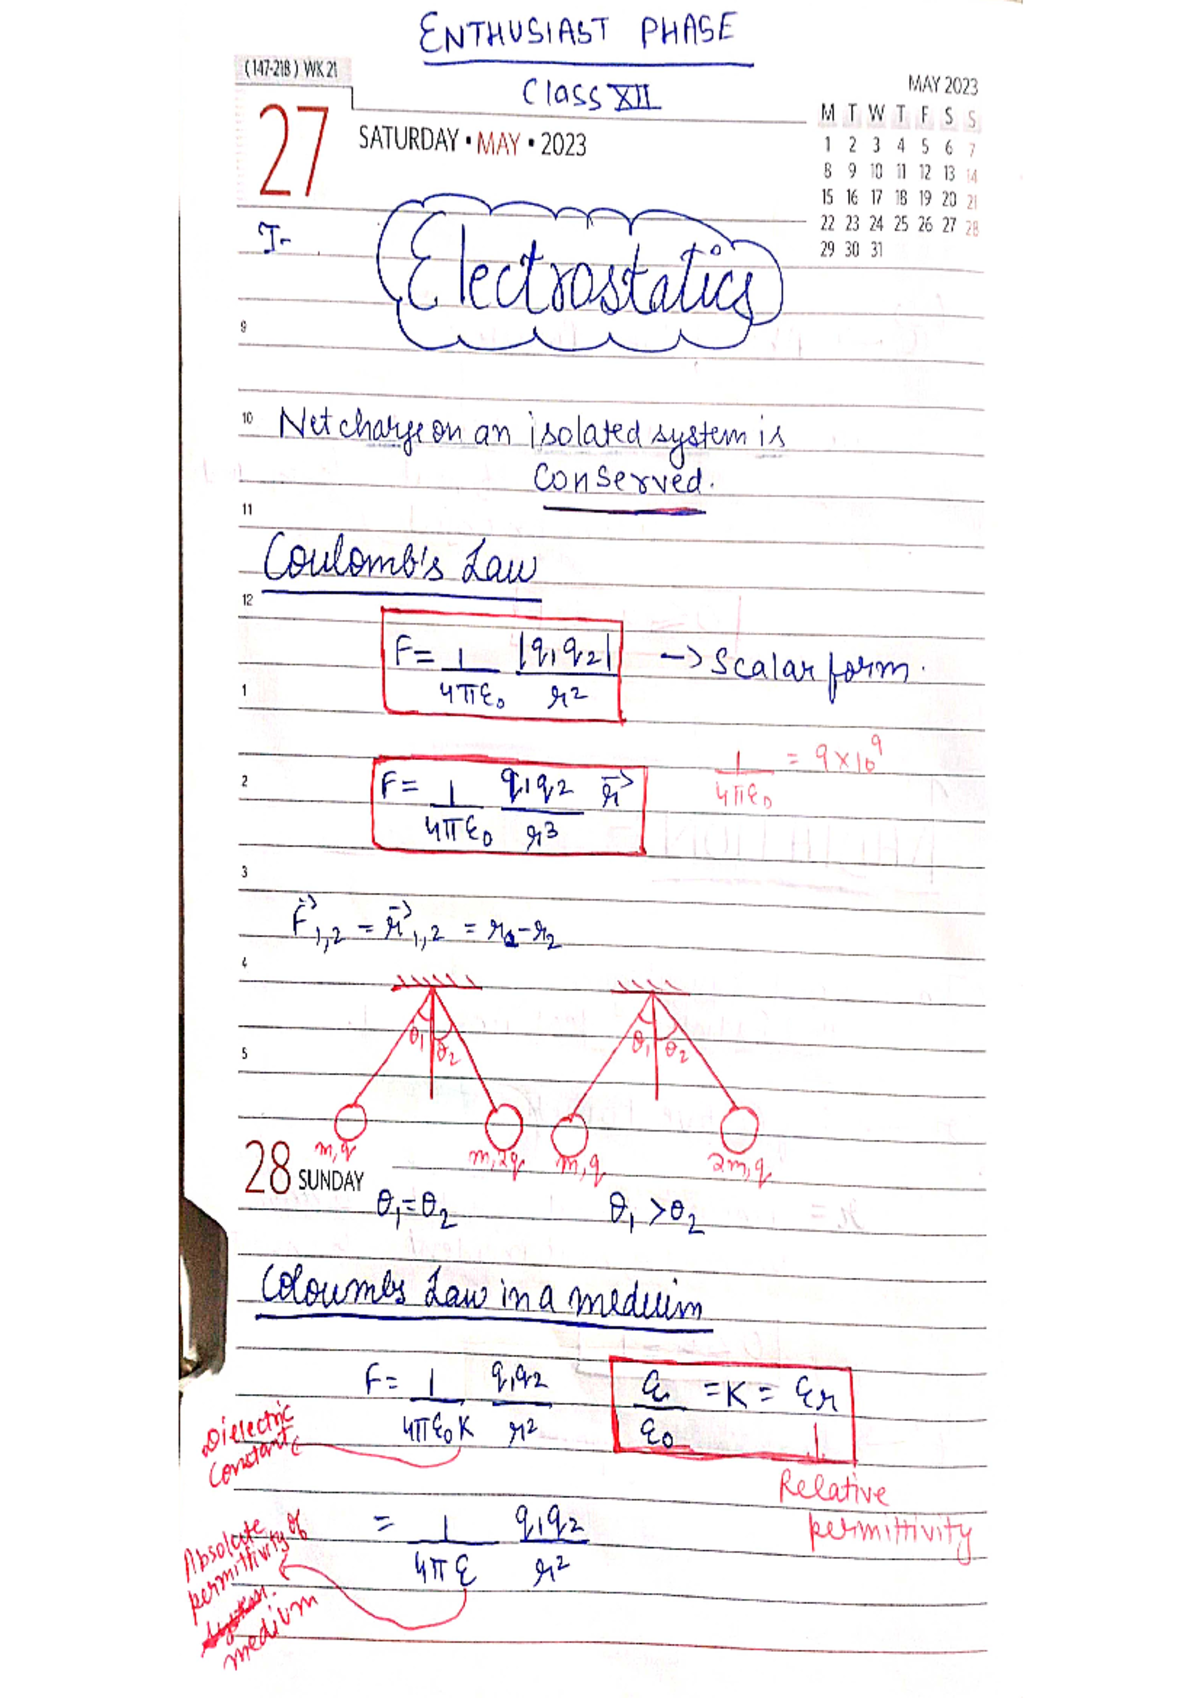 ENTHUSIAST PHASE
(147-218) WK 21
Class XII
MAY 2023
27
SATURDAY • MAY • 2023
M T W T F S S
1 2 3 4 5 6 7
8 9 10 11 12 13 14
15 16 17 18 19 20 21
22 23 24 25 26 27 28
29 30 31
I-
Electrostatics
9
10 Net charge on an isolated system is
conserved.
11
Coulomb's Law
12
F = 1/4πε₀ |q₁q₂|/r² -> Scalar form.
1
1/4πε₀ = 9×10⁹
2 F = 1/4πε₀ q₁q₂/r³ r⃗
3
F⃗₁,₂ = r⃗₁,₂ = r₁-r₂
4
θ₁ θ₂ θ₁ θ₂
5
m,q m,2q m,q 2m,q
28 SUNDAY
θ₁=θ₂ θ₁>θ₂
Coloumbs Law in a meduim
F = 1/4πε₀K q₁q₂/r² ε/ε₀ = K = εr
Dielectric
Constant
Relative
permittivity
= 1/4πε q₁q₂/r²
Absolute
permittivity of
medium